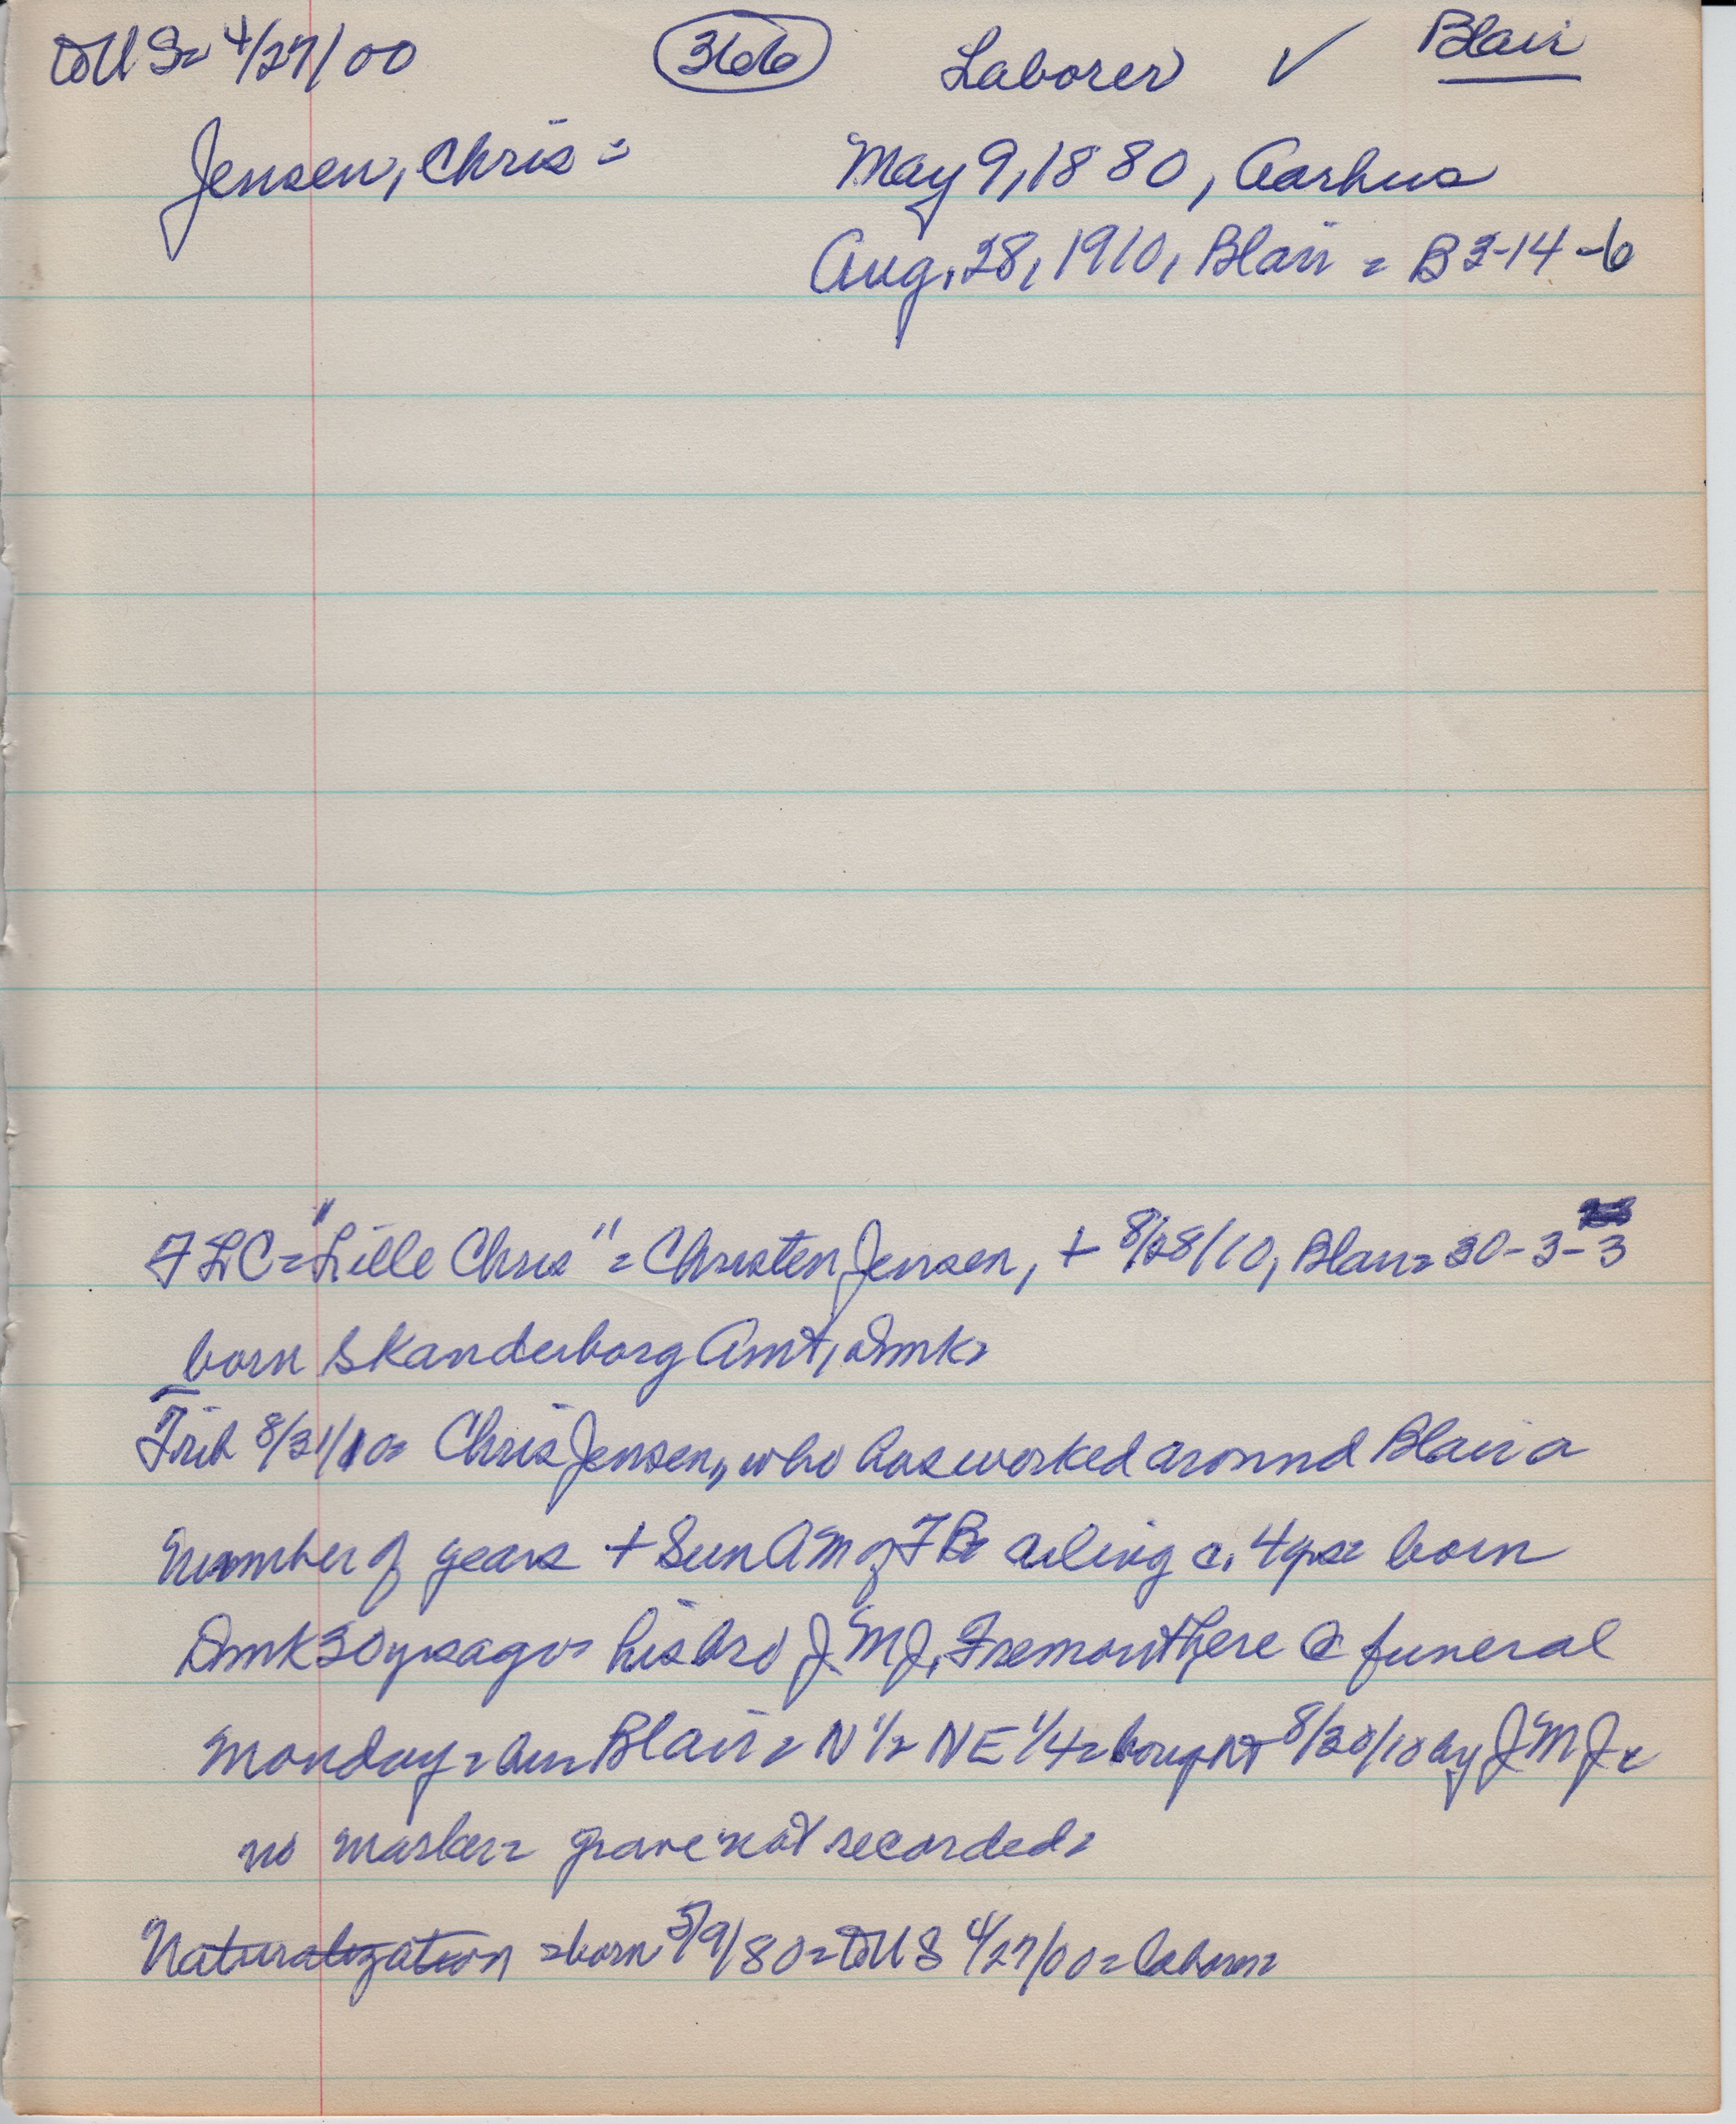 to U S= 4/27/00 366 Laborer ✓ Blair
Jensen, Chris= May 9, 1880, Aarhus
Aug. 28, 1910, Blair = B3-14-6
FLC= "Lille Chris" = Christen Jensen, + 8/28/10, Blair= 30-3-3
born Skanderborg Amt, Dmk=
Trib 8/31/10= Chris Jensen, who has worked around Blair a
number of years + Sun AM of TB= ailing c. 4 yrs= born
Dmk 30 yrs ago= his bro J.M.J. Fremont here @ funeral
Monday= bu= Blair= N 1/2 NE 1/4= bought 8/30/10 by J M J=
no marker= grave not recorded=
Naturalization =born 5/9/80= to U S 4/27/00= laborer=